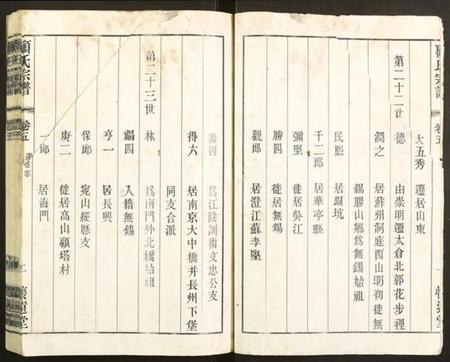 顧氏宗譜
卷五
大五秀 遷居山東
第二十二世 德 由崇明遷太倉北郭花步裡
潤之 居蘇州洞庭西山
錫膠山為無錫始祖
民熙
千二郎 居華亭縣
彌堅 徙居吳江
勝四 徙居無錫
觀郎 居澄江蘇李堅
壽四 為江陰訓術文忠公支
得六 居南京大中橋并長州下堡
同支合派
第二十三世 林 為南門外北橋始祖
福四 入籍無錫
亨一 居長興
保郎 宛山經歷支
庚二 徙居高山顧塔村
一郎 居海門
顧氏宗譜
卷五